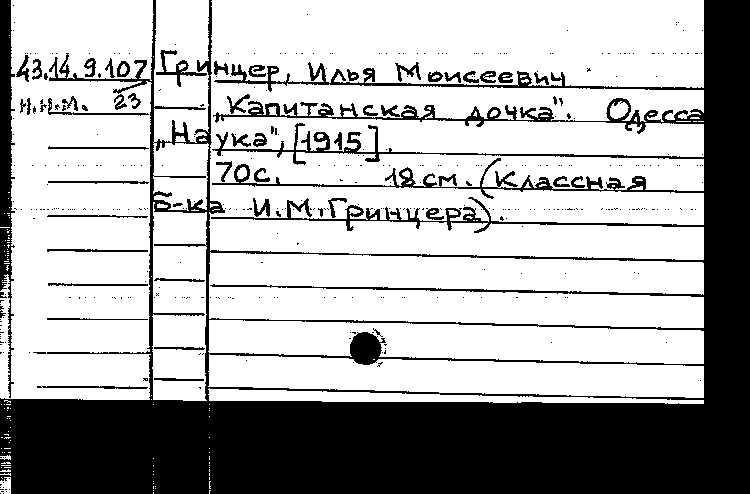 43.14.9.107 Гринцер, Илья Моисеевич
н.н.м. 23 „Капитанская дочка". Одесса
„Наука", [1915].
70с. 18см. (Классная
б-ка И.М.Гринцера).